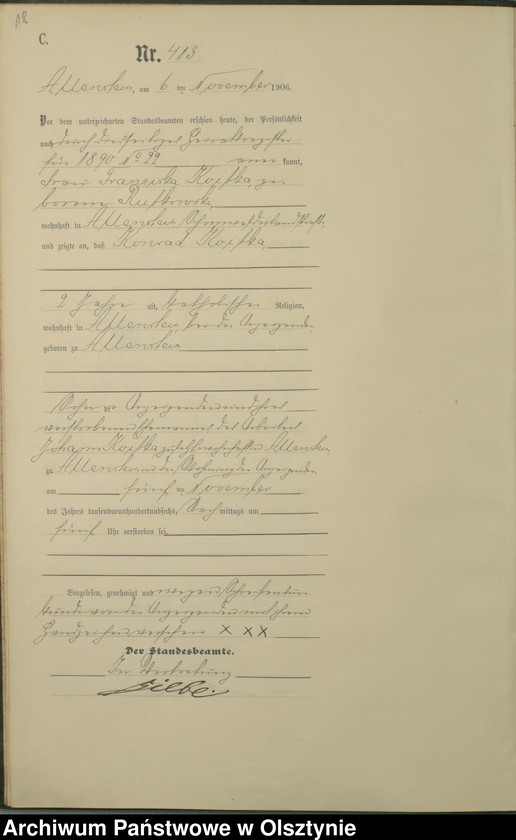 18
C.
Nr. 413.
Allenstein, am 6 ten November 1906.
Vor dem unterzeichneten Standesbeamten erschien heute, der Persönlichkeit
nach durch diesseitiges Heiratsregister
für 1890 No 22 aner kannt,
Frau Franziska Koifka, ge
borene Rutkowski,
wohnhaft in Allenstein,
und zeigte an, daß Konrad Koifka,
2 Jahre alt, katholischer Religion,
wohnhaft in Allenstein, bei der Anzeigenden,
geboren zu Allenstein,
Sohn der Anzeigenden und ihres
verstorbenen Ehemannes des Arbeiters
Johann Koifka, zuletzt wohnhaft in Allenstein,
zu Allenstein in der Wohnung der Anzeigenden
am fünf ten November
des Jahres tausendneunhundertundsechs, Nach mittags um
fünf Uhr verstorben sei.
Vorgelesen, genehmigt und wegen Schreibensun
kunde von der Anzeigenden mit ihrem
Handzeichen versehen × × ×
Der Standesbeamte.
In Vertretung
Archiwum Państwowe w Olsztynie